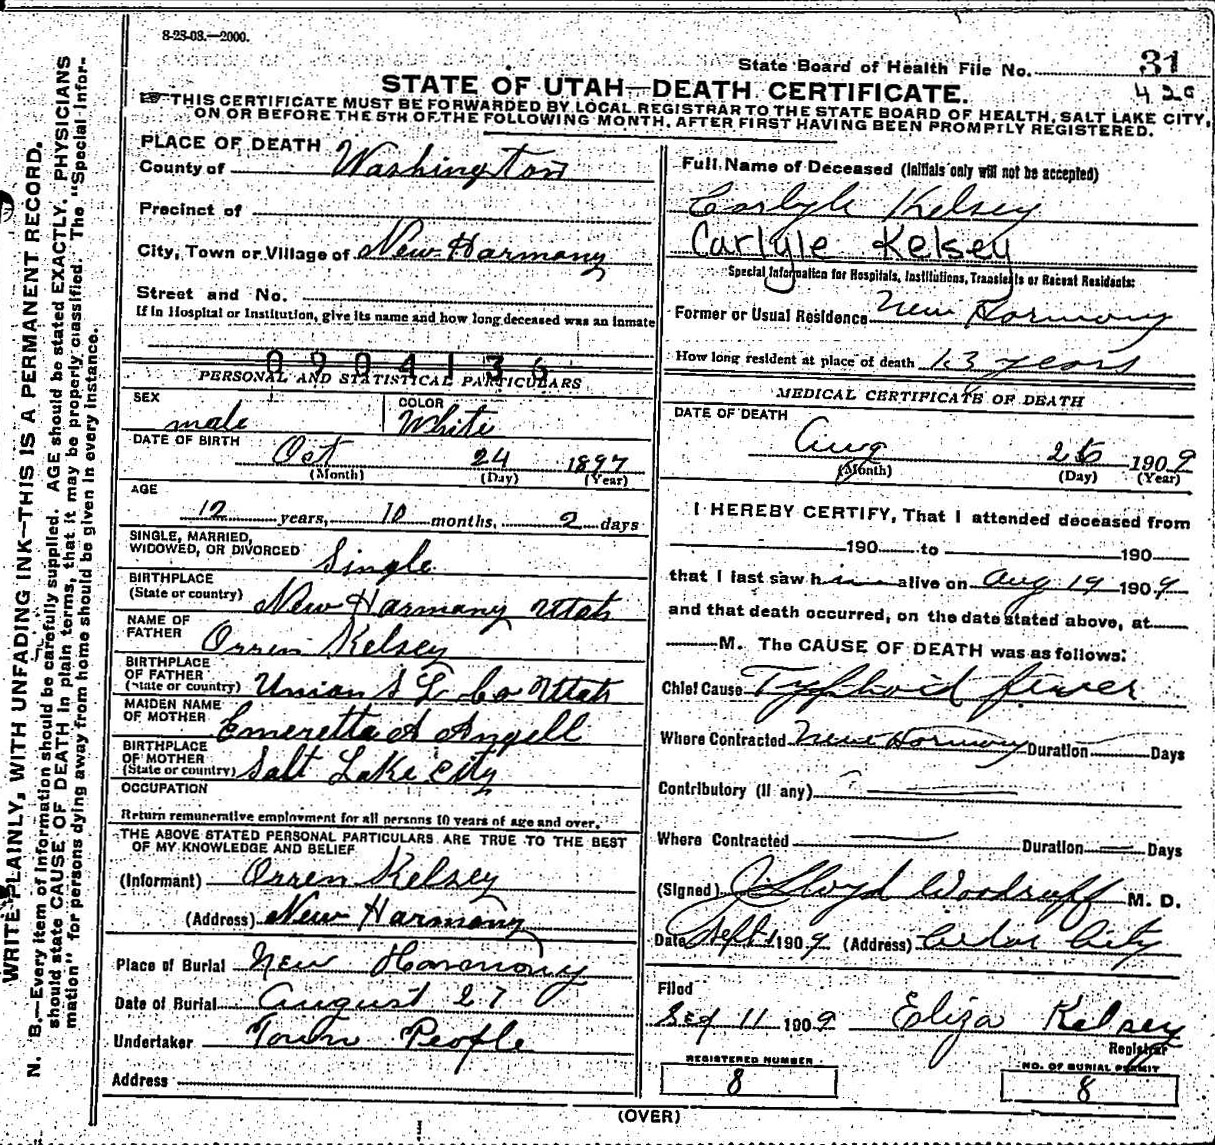 8-23-08.—2000.
State Board of Health File No. 31
420
STATE OF UTAH—DEATH CERTIFICATE.
THIS CERTIFICATE MUST BE FORWARDED BY LOCAL REGISTRAR TO THE STATE BOARD OF HEALTH, SALT LAKE CITY,
ON OR BEFORE THE 5TH OF THE FOLLOWING MONTH, AFTER FIRST HAVING BEEN PROMPTLY REGISTERED.
WRITE PLAINLY, WITH UNFADING INK—THIS IS A PERMANENT RECORD.
N. B.—Every item of information should be carefully supplied. AGE should be stated EXACTLY. PHYSICIANS
should state CAUSE OF DEATH in plain terms, that it may be properly classified. The "Special Infor-
mation" for persons dying away from home should be given in every instance.
PLACE OF DEATH
County of Washington
Precinct of
City, Town or Village of New Harmony
Street and No.
If in Hospital or Institution, give its name and how long deceased was an inmate
0904136
PERSONAL AND STATISTICAL PARTICULARS
SEX male COLOR White
DATE OF BIRTH Oct 24 1897
(Month) (Day) (Year)
AGE
12 years, 10 months, 2 days
SINGLE, MARRIED,
WIDOWED, OR DIVORCED Single
BIRTHPLACE
(State or country) New Harmony Utah
NAME OF
FATHER Orren Kelsey
BIRTHPLACE
OF FATHER
(State or country) Union S L Co Utah
MAIDEN NAME
OF MOTHER Emeretta A Angell
BIRTHPLACE
OF MOTHER
(State or country) Salt Lake City
OCCUPATION
Return remunerative employment for all persons 10 years of age and over.
THE ABOVE STATED PERSONAL PARTICULARS ARE TRUE TO THE BEST
OF MY KNOWLEDGE AND BELIEF
(Informant) Orren Kelsey
(Address) New Harmony
Place of Burial New Harmony
Date of Burial August 27
Undertaker Town People
Address
Full Name of Deceased (Initials only will not be accepted)
Carlyle Kelsey
Carlyle Kelsey
Special Information for Hospitals, Institutions, Transients or Recent Residents:
Former or Usual Residence New Harmony
How long resident at place of death 13 years
MEDICAL CERTIFICATE OF DEATH
DATE OF DEATH
Aug 26 1909
(Month) (Day) (Year)
I HEREBY CERTIFY, That I attended deceased from
190 to 190
that I last saw him alive on Aug 19 1909
and that death occurred, on the date stated above, at
M. The CAUSE OF DEATH was as follows:
Chief Cause Typhoid fever
Where Contracted New Harmony Duration Days
Contributory (if any)
Where Contracted Duration Days
(Signed) J Lloyd Woodruff M. D.
Date Sept 1 1909 (Address) Cedar City
Filed
Sep 11 1909 Eliza Kelsey
Registrar
REGISTERED NUMBER
8
NO. OF BURIAL PERMIT
8
(OVER)